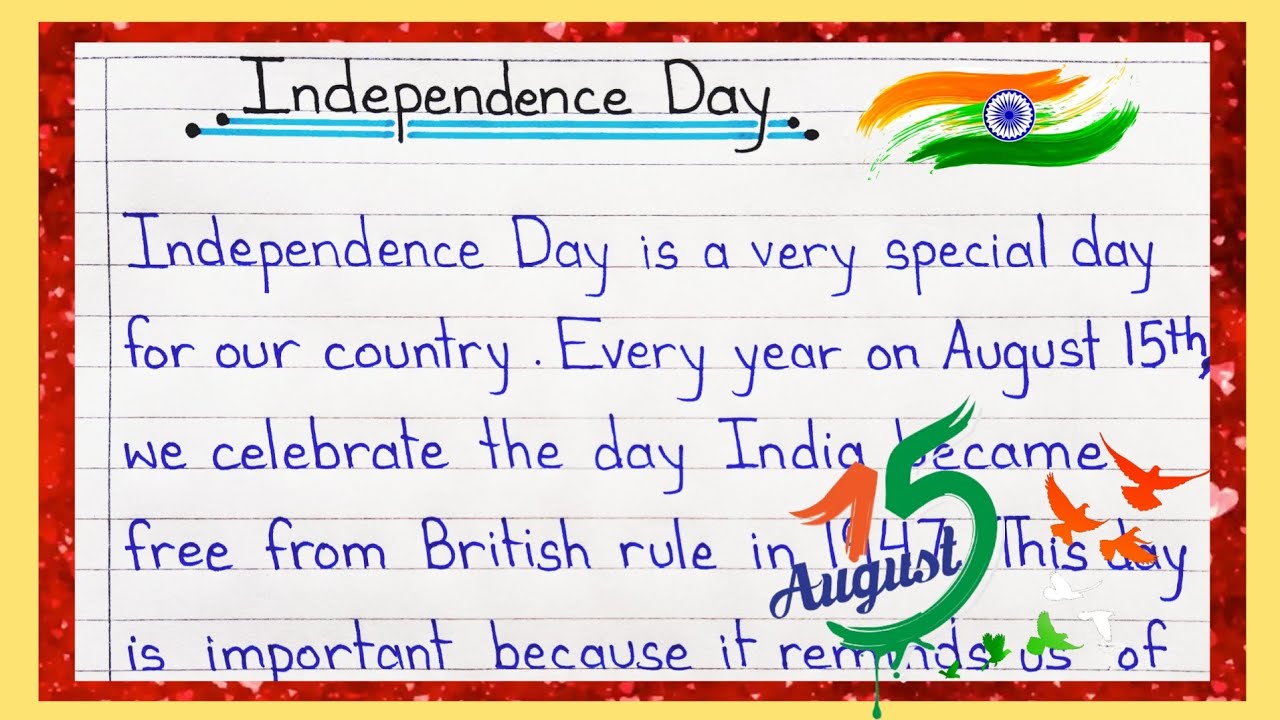 Independence Day
Independence Day is a very special day
for our country. Every year on August 15th,
we celebrate the day India became
free from British rule in 1947. This day
is important because it reminds us of
15
August